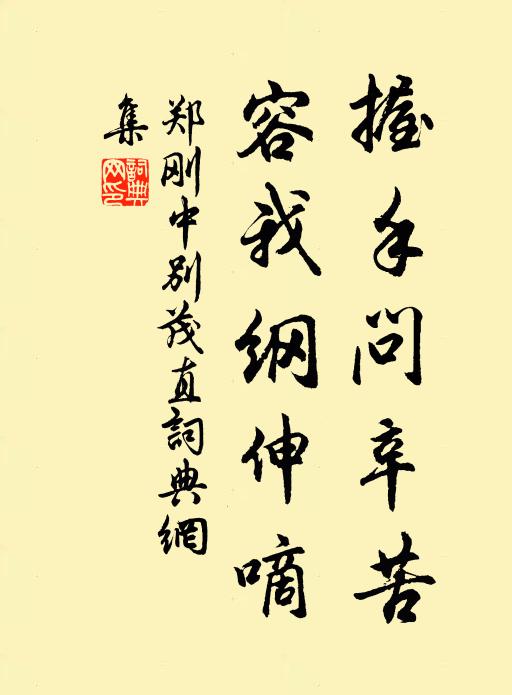 握手问辛苦
容我纲伸嘀
郑刚中别茂直詞典網
集
詞典
网印